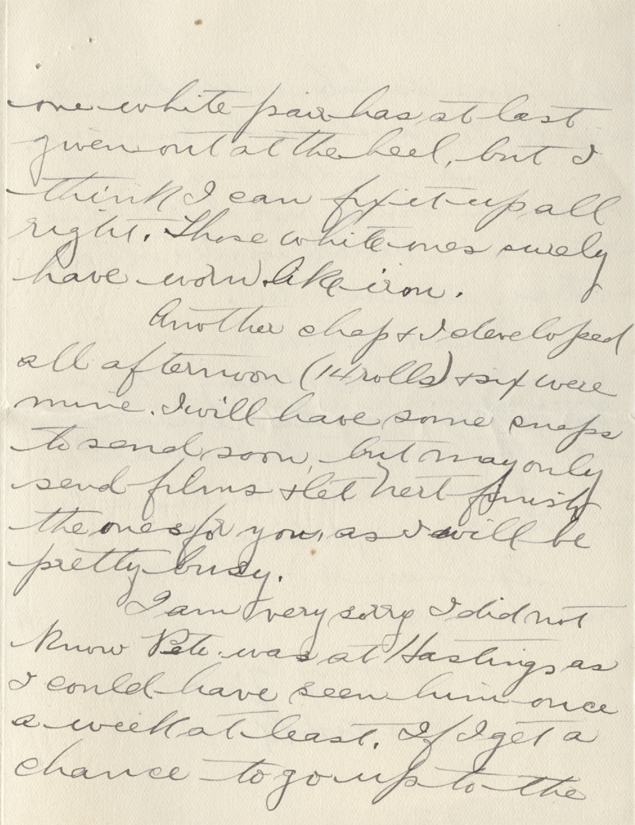 one white pair has at last
given out at the heel, but I
think I can fix it up all
right. Those white ones surely
have worn like iron.
Another chap & I developed
all afternoon (14 rolls) & six were
mine. I will have some snaps
to send soon, but may only
send films & let finish
the ones for you, as I will be
pretty busy.
I am very sorry I did not
know Pete was at Hastings as
I could have seen him once
a week at least. If I get a
chance to go up to the